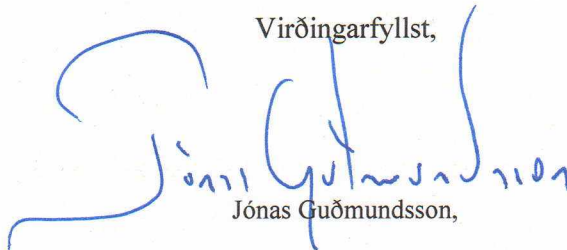 Virðingarfyllst,
Jónas Guðmundsson
Jónas Guðmundsson,